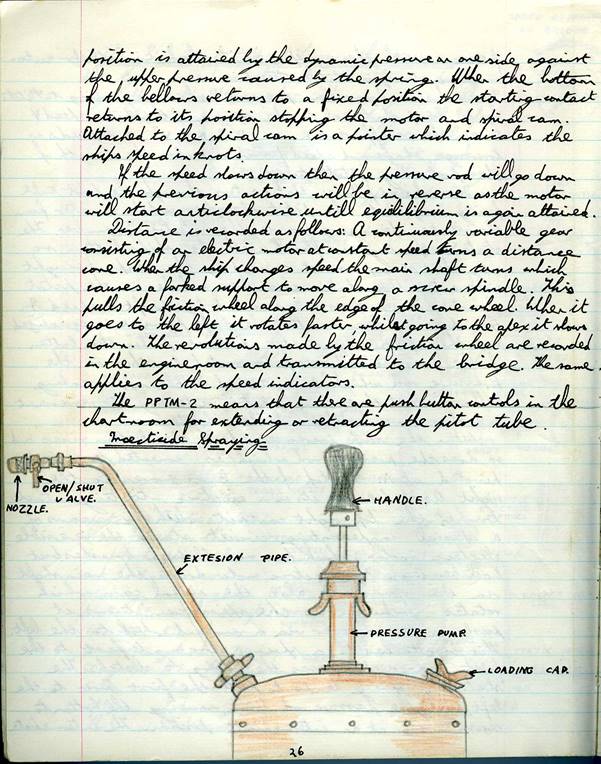 position is attained by the dynamic pressure on one side, against
the upper pressure caused by the spring. When the bottom
of the bellows returns to a fixed position the starting contact
returns to its position stopping the motor and spiral cam.
Attached to the spiral cam is a pointer which indicates the
ships speed in knots.
If the speed slows down then the pressure rod will go down
and the previous actions will be in reverse as the motor
will start anticlockwise untill equilibrium is again attained.
Distance is recorded as follows: A continuously variable gear
consisting of an electric motor at constant speed turns a distance
cone. When the ship changes speed the main shaft turns which
causes a forked support to move along a screw spindle. This
pulls the friction wheel along the edge of the cone wheel. When it
goes to the left it rotates faster, whilst going to the apex it slows
down. The revolutions made by the friction wheel are recorded
in the engineroom and transmitted to the bridge. The same
applies to the speed indicators.
The PPTM-2 means that there are push button controls in the
chartroom for extending or retracting the pitot tube.
Insecticide Spraying
OPEN/SHUT
VALVE.
NOZZLE.
HANDLE.
EXTESION PIPE.
PRESSURE PUMP.
LOADING CAP.
26